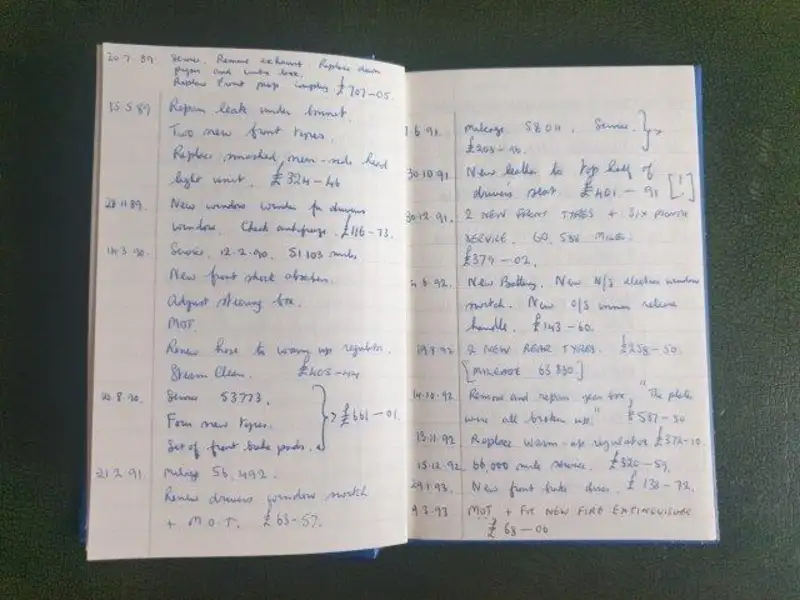 20.7.89 Service. Remove exhaust. Replace down
pipes and box.
Replace front prop coupling. £707-05.
15.5.89 Repair leak under bonnet.
Two new front tyres.
Replace smashed near-side head
light unit. £324-46
28.11.89. New window winder for drivers
window. Check antifreeze. £116-73.
14.3.90. Service, 12.2.90. 51103 miles
New front shock absorbers.
Adjust steering box.
MOT.
Renew hose to warm up regulator.
Steam Clean. £405-44
8.90. Service 53773.
Four new tyres.
Set of front brake pads. £661-01.
21.2.91. Mileage 56,492.
Renew drivers window switch
+ M.O.T. £63-57.
6.91. Mileage 58011. Service.
£203-
30.10.91 New leather to top half of
drivers seat. £401-91 [!]
30.12.91. 2 NEW FRONT TYRES + SIX MONTH
SERVICE. 60,588 MILES.
£379-02.
6.92. New Battery. New N/S electric window
switch. New O/S inner release
handle. £143-60.
8.92 2 NEW REAR TYRES. £258-50.
[MILEAGE 63830]
14.10.92 Remove and repair gear box, "The plates
were all broken up." £587-50
13.11.92 Replace warm-up regulator £372-10.
15.12.92. 66,000 mile service. £320-59.
29.1.93. New front brake discs. £138-72.
9.3.93 MOT + FIT NEW FIRE EXTINGUISHER
£68-06